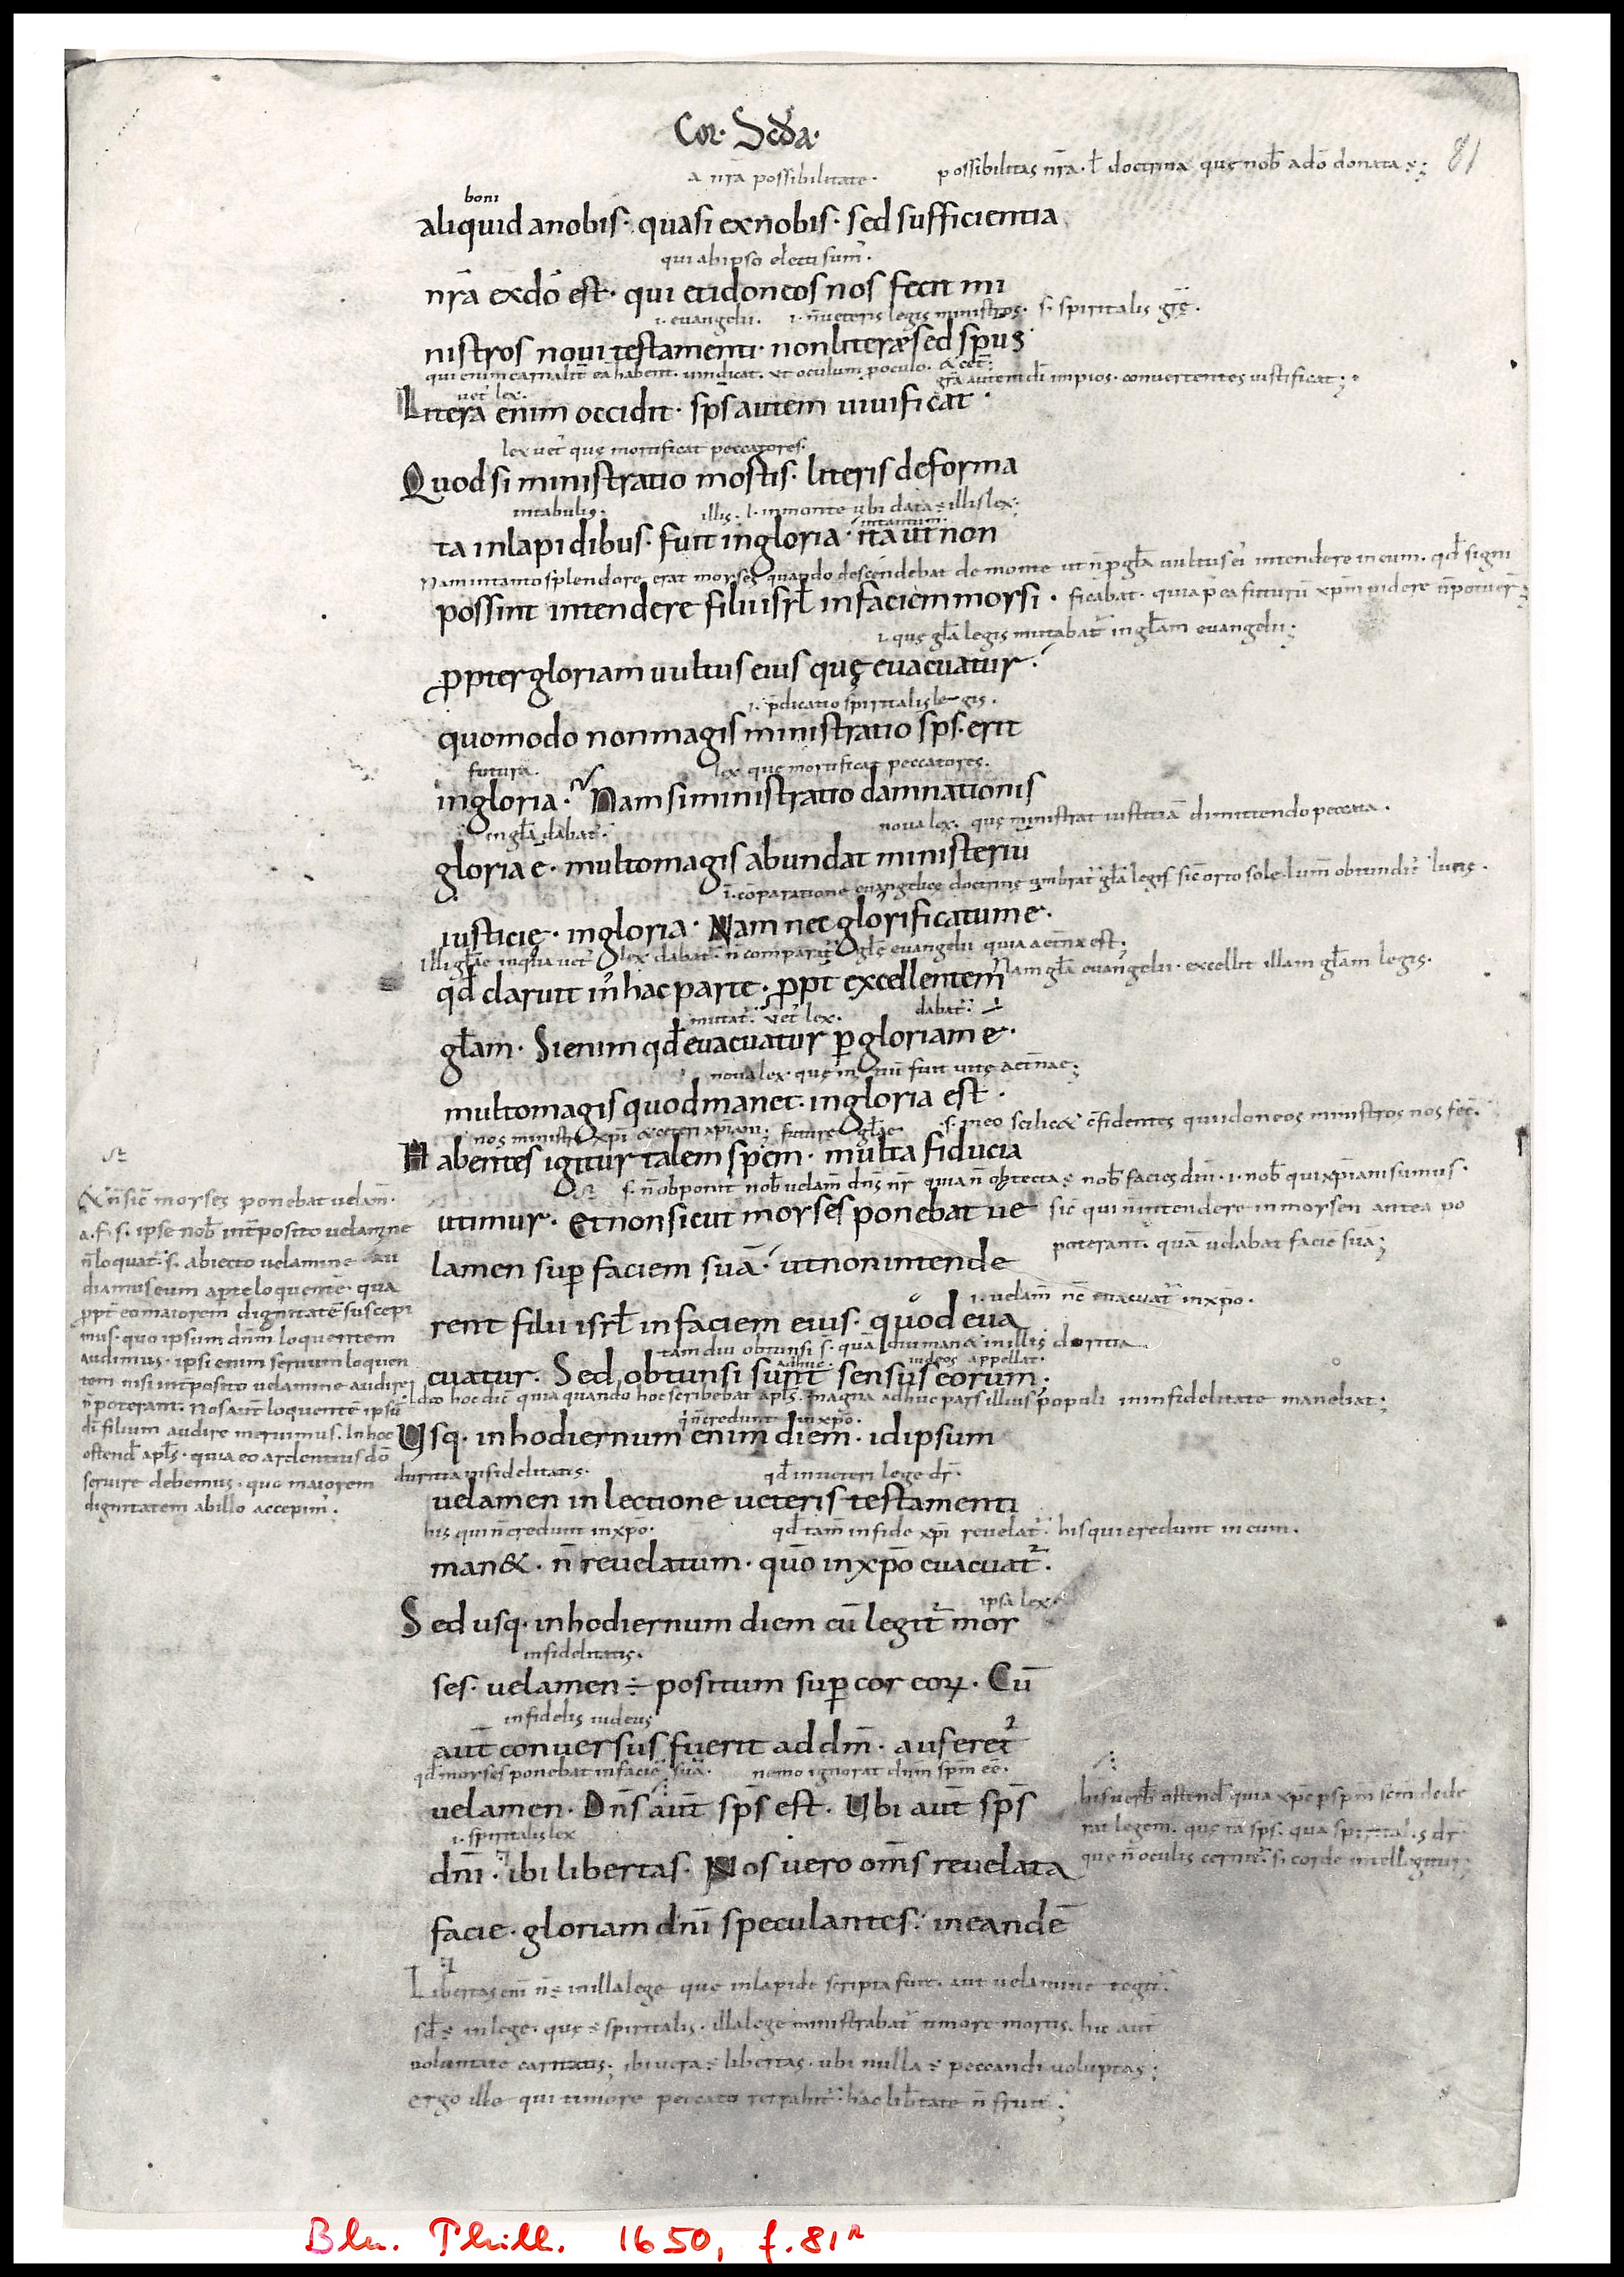 Cor· Scd̄a·
81
a nr̄a possibilitate·
possibilitas nr̄a· ł doctrina quę nob̄ a dō donata ÷;
boni
aliquid a nobis· quasi ex nobis· sed sufficientia
qui ab ipso electi sum̄·
nr̄a ex dō est· qui et idoneos nos fecit mi
·i· evangelii· ·i· n̄ veteris legis ministros· s· spiritalis gr̄ę·
nistros novi testamenti· non literæ sed sp̄us
qui enim carnalit̄ eā habent· vindicat· ut oculum p̄ oculo· & cet̄·
gr̄a autem dī impios· convertentes iustificat;
vet̄ lex·
Litera enim occidit· sp̄s autem vivificat·
lex vet̄ quę mortificat peccatores·
Quod si ministratio mostis· literis deforma
in tabulis·
illis· ł· in monte ubi data ÷ illis lex;
in tantum·
ta in lapidibus· fuit in gloria· ita ut non
Nam in tanto splendore erat moyses quando descendebat de monte ut n̄ p̄ gł̄a vultus ei intendere in eum· qd̄ signi
possint intendere filii isrł in faciem moysi·
ficabat· quia p̄ ea futurū xp̄m videre n̄ potuer̄;
·i· quę gł̄a legis mutabat̄ in gł̄am evangelii;
propter gloriam vultus eius quę evacuatur·
·i· p̄dicatio spiritalis legis·
quomodo non magis ministratio sp̄s· erit
futura·
lex quę mortificat peccatores·
in gloria· Nam si ministratio damnationis
in gł̄a dabat̄·
nova lex· quę ministrat iustitiā dimittendo peccata·
gloria ē· multo magis abundat ministeriū
·i· cōparatione evangelicę doctrinę umbrat̄ gł̄a legis sic̄ orto sole· lum̄ obtundit̄ lucis·
iusticię· in gloria· Nam nec glorificatum ē·
Illi gł̄ae in qua vet̄ lex dabat̄ n̄ comparat̄ gł̄ę evangelii quia aet̄na est;
Nam gł̄a evangelii· excellit illam gł̄am legis·
qd̄ claruit in hac parte· p̄pt̄ excellentem
mutat̄· vet̄ lex·
dabat̄·
gł̄am· Si enim qd̄ evacuatur p̄ gloriam ē·
nova lex· quę in nū fuit vitę aet̄nae;
multo magis quod manet· in gloria est·
nos ministri xp̄i & ceteri xp̄iani; futurę gł̄ae
s· in eo scilic& c̄fidentes qui idoneos ministros nos fec̄·
Habentes igitur talem spem· multa fiducia
s· n̄ obponit nob̄ velam̄ dn̄s nr̄ quia n̄ obtecta ÷ nob̄ facies dn̄i· ·i· nob̄ qui xp̄iani sumus·
utimur· Et non sicut moyses ponebat ve
sic̄ qui n̄ intendere in moysen antea po
poterant· quā velabat faciē suā;
lamen sup̄ faciem suā· ut non intende
·i· velam̄ nc̄ evacuat̄ in xp̄o·
rent filii isrł in faciem eius· quod eva
tam diu obtunsi s· quā diu man& in illis duritia
adhuc·
iudeos appellat·
cuatur· Sed obtunsi sunt sensus eorum;
Ideo hoc dic̄ quia quando hoc scribebat apł̄s· magna adhuc pars illius populi in infidelitate manebat;
q̄ n̄ credunt in xp̄o·
Usq· in hodiernum enim diem· id ipsum
duritia infidelitatis·
qd̄ in veteri lege dr̄·
velamen in lectione veteris testamenti
his qui n̄ credunt in xp̄o·
qd̄ tam̄ in fide xp̄i revelat̄· his qui credunt in eum·
man&· n̄ revelatum· quō in xp̄o evacuat̄·
ipsa lex·
Sed usq· in hodiernum diem cū legit̄ moy
infidelitatis·
ses· velamen ÷ positum sup̄ cor eoꝝ· Cū
infidelis iudeus
aut̄ conversus fuerit ad dm̄· auferet̄
qd̄ moyses ponebat in faciē suā·
nemo ignorat dn̄m sp̄m eē·
velamen· Dn̄s aut̄ sp̄s est· Ubi aut̄ sp̄s
·i· spiritalis lex
dn̄i· ibi libertas· Nos vero om̄s revelata
facie· gloriam dn̄i speculantes· in eandē
&n̄ sic̄ moyses ponebat velam̄·
a· f· s· ipse nob̄ int̄posito velamine
n̄ loquat̄· s· abiecto velamine au
diamus eum ap̄te loquentē· qua
p̄pt̄ eo maiorem dignitatē suscepi
mus· quo ipsum dn̄m loquentem
audimus· ipsi enim servum loquen
tem nisi int̄posito velamine audire
n̄ poterant· Nos aut̄ loquentē ipsū
dī filium audire meruimus· In hoc
ostend̄ apł̄s· quia eo ardentius dō
servire debemus· quo maiorem
dignitatem ab illo accepim̄·
his verb̄ ostend̄ quia xp̄c p̄ sp̄m sc̄m dede
rat legem· quę tā sp̄s· qua spiritalis dr̄
quę n̄ oculis cernit̄· s· corde intellegitur;
Libertas eni n̄ ÷ in illa lege que in lapide scripta fuit· aut velamine tegit̄·
sd̄ ÷ in lege· quę ÷ spiritalis· illa lege ministrabat̄ timore mortis· hic aut̄
voluntate caritatis; ibi vera ÷ libertas· ubi nulla ÷ peccandi voluptas;
ergo ille qui timore peccato retrahit̄· hac lib̄tate n̄ fruit̄;
Bln. Phill. 1650, f. 81r